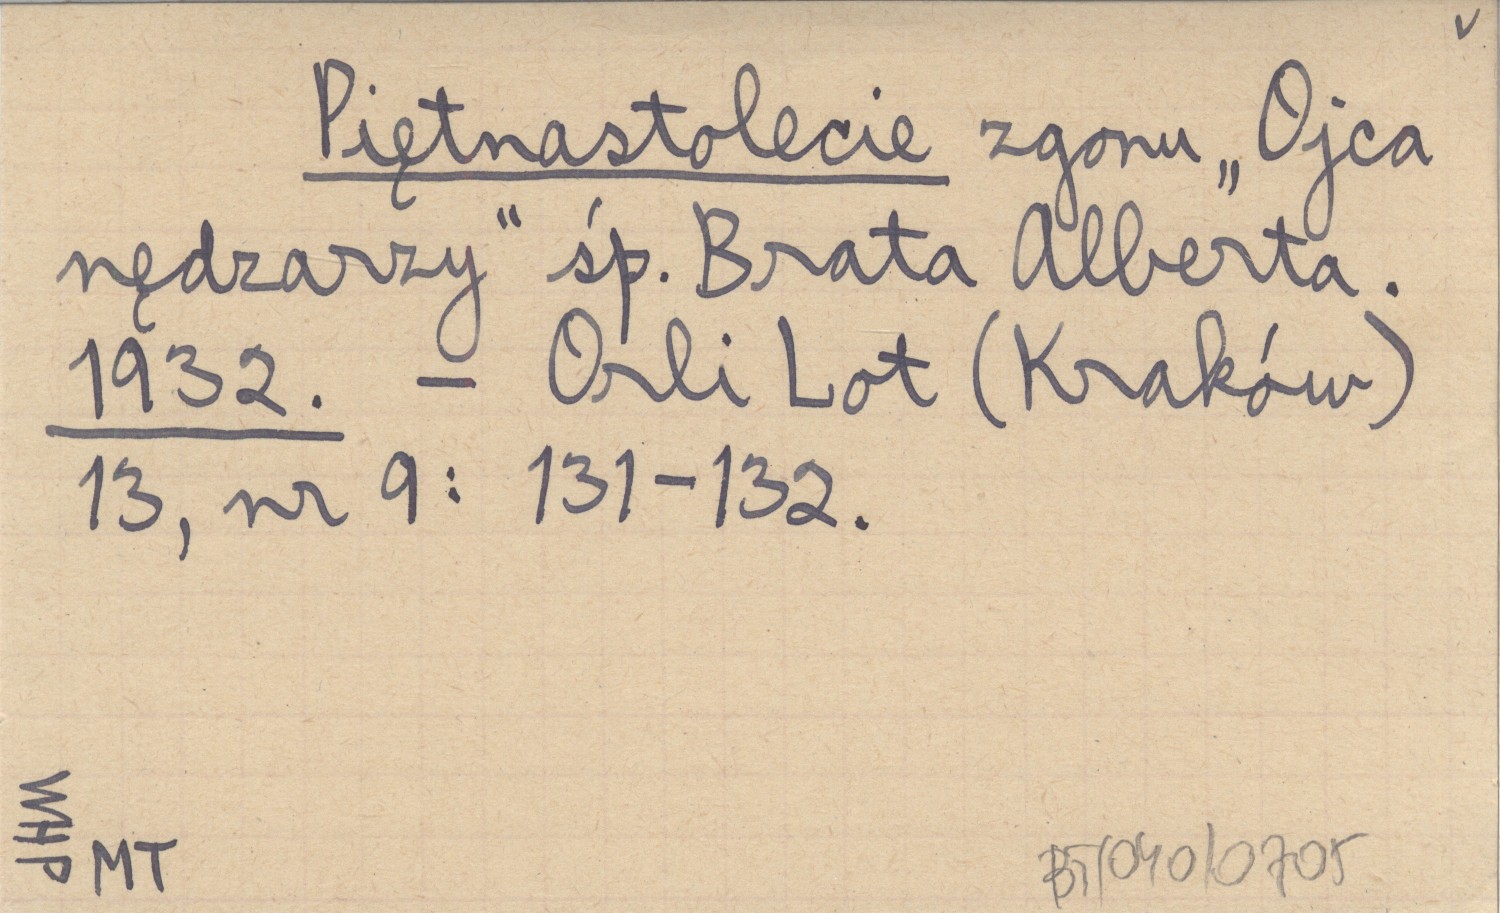 Piętnastolecie zgonu „Ojca
nędzarzy“ śp. Brata Alberta.
1932. – Orli Lot (Kraków)
13, nr 9: 131–132.
WHP
MT
BT/040/0705